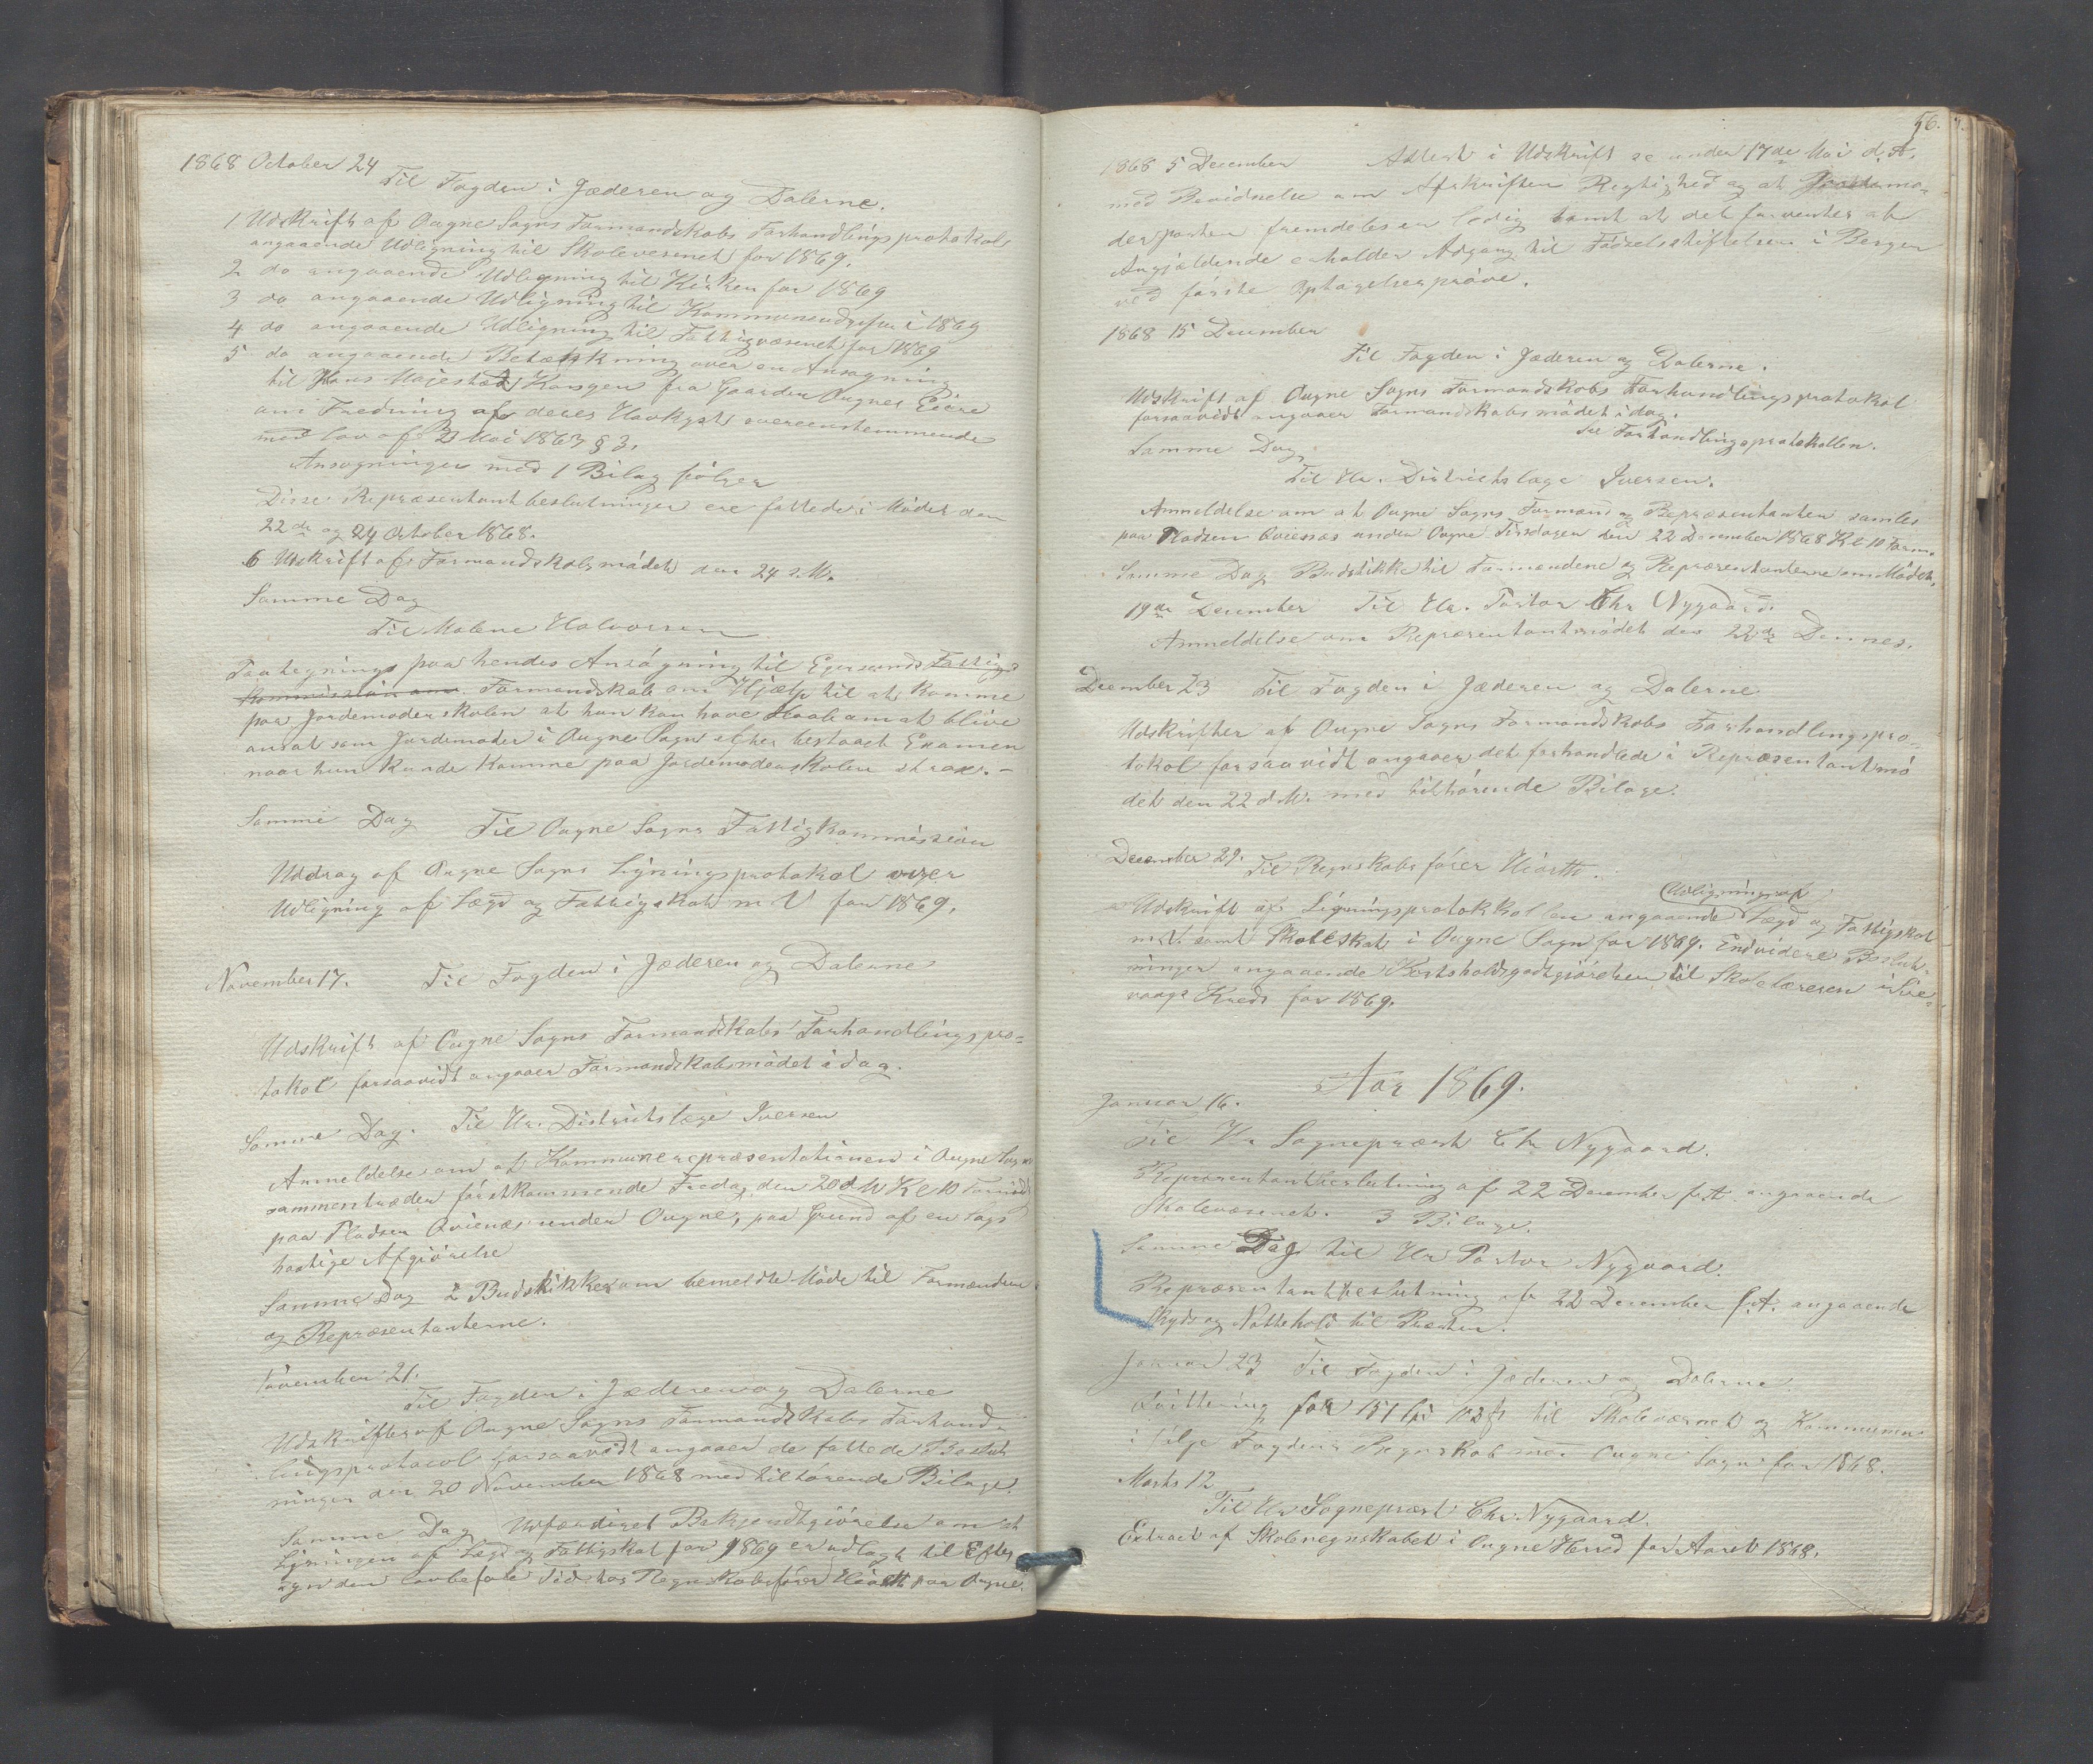 1868 October 24
Til Fogden i Jæderen og Dalerne.
1 Udskrift af Ougne Sogns Formandskabs Forhandlingsprotokol
angaaende Udligning til Skolevesenet for 1869.
2 do angaaende Udligning til Kirken for 1869
3 do angaaende Udligning til Kommuneudgifter i 1869
4 do angaaende Udligning til Fattigvæsenet for 1869
5 do angaaende Betænkning over en Ansøgning
til Hans Majestæt Kongen fra Gaarden Ougnes Eiere
om Fredning af deres Havkyst overeenstemmende
med lov af 23 Mai 1863 § 3.
Ansøgningen med 1 Bilag følger
Disse Repræsentantbeslutninger ere fattede i Mødet den
22de og 24 October 1868.
6 Udskrift af Formandskabsmødet den 24 d. M.
Samme Dag
Til Malene Halvorsen
Paategning paa hendes Ansøgning til Egersunds Fattig-
kommission om Formandskab om Hjælp til at komme
paa Jordemoderskolen at hun kan have Haab om at blive
ansat som Jordemoder i Ougne Sogn efter bestaaet Examen
naar hun kunde komme paa Jordemoderskolen strax. -
Samme Dag Til Ougne Sogns Fattigkommission
Uddrag af Ougne Sogns Ligningsprotokol over
Udligning af Lægd og Fattigskat m V for 1869.
November 17. Til Fogden i Jæderen og Dalerne
Udskrift af Ougne Sogns Formandskabs Forhandlingspro-
tokol forsaavidt angaaer Formandskabsmødet idag.
Samme Dag. Til Hr. Districtslæge Iversen
Anmeldelse om at Kommunerepræsentationen i Ougne Sogn
sammentræder førstkommende Fredag den 20 d M Kl 10 Formid
paa Pladsen Qvienæs under Ougne, paa Grund af en Sags
hastige Afgjørelse
Samme Dag 2 Budstikker om bemeldte Møde til Formændene
og Repræsentanterne.
November 21.
Til Fogden i Jæderen og Dalerne
Udskrifter af Ougne Sogns Formandskabs Forhand-
lingsprotocol forsaavidt angaaer de fattede Beslut
ninger den 20 November 1868 med tilhørende Bilage.
Samme Dag Udfærdiget Bekjendtgjørelse om at
Ligningen af Lægd og Fattigskat for 1869 er udlagt til Efter
syn den lovbefalede Tid hos Regnskabsfører Hiorth paa Ougne.
56.
1868 5 December Attest i Udskrift se under 17de Mai d. A.
med Bevidnelse om Afskriftens Rigtighed og at Jordemo-
derposten fremdeles er ledig samt at det forventes at
Angjældende erholder Adgang til Fødselsstiftelsen i Bergen
ved første Optagelsesprøve.
1868 15 December
Til Fogden i Jæderen og Dalerne.
Udskrift af Ougne Sogns Formandskabs Forhandlingsprotokol
forsaavidt angaaer Formandskabsmødet idag.
See Forhandlingsprotokollen.
Samme Dag
Til Hr. Districtslæge Iversen.
Anmeldelse om at Ougne Sogns Formænd og Repræsentanter samles
paa Pladsen Qvienæs under Ougne Tirsdagen den 22 December 1868 Kl 10 Form.
Samme Dag Budstikke til Formændene og Repræsentanterne om Mødet.
19de December Til Hr. Pastor Chr Nygaard.
Anmeldelse om Repræsentantmødet den 22de Dennes.
December 23 Til Fogden i Jæderen og Dalerne
Udskrifter af Ougne Sogns Formandskabs Forhandlingspro-
tokol forsaavidt angaaer det forhandlede i Repræsentantmø
det den 22 d. M. med tilhørende Bilage.
December 29. Til Regnskabsfører Hiorth.
Udligning af
Udskrift af Ligningsprotokkollen angaaende Lægd og Fattigskat
m. V. samt Skoleskat i Ougne Sogn for 1869. Endvidere Beslut-
ninger angaaende Kostholdsgodtgjørelsen til Skolelæreren i Sire-
vaags Kreds for 1869.
Aar 1869.
Januar 16.
Til Hr Sognepræst Chr Nygaard.
Repræsentantbeslutning af 22 December f. A. angaaende
Skolevæsenet. 3 Bilage.
Samme Dag til Hr Pastor Nygaard.
Repræsentantbeslutning af 22 December f. A. angaaende
Skyds og Nattehold til Præsten.
Januar 23 Til Fogden i Jæderen og Dalerne
Qvittering for 151 til Skolevæsnet og Kommunen
i følge Fogdens Regnskab med Ougne Sogn for 1868.
Marts 12
Til Hr Sognepræst Chr. Nygaard.
Extract af Skoleregnskabet i Ougne Herred for Aaret 1868.